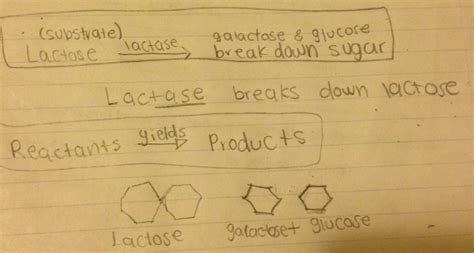 (substrate) galactose & glucose
Lactose lactase break down sugar
Lactase breaks down lactose
Reactants yields Products
Lactose galactose + glucose